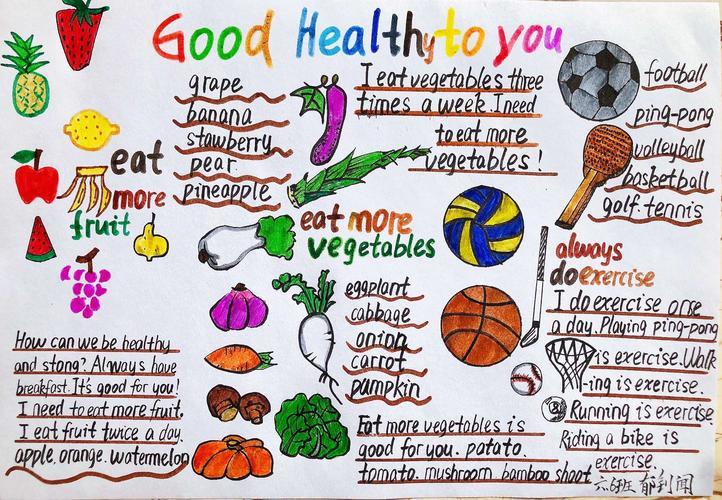 Good Healthy to you
grape
banana
stawberry
pear
pineapple
eat
more
fruit
I eat vegetables three
times a week. I need
to eat more
vegetables!
football
ping-pong
volleyball
basketball
golf. tennis
eat more
vegetables
eggplant
cabbage
onion
carrot
pumpkin
always
do exercise
I do exercise orse
a day. Playing ping-pong
is exercise. Walk
-ing is exercise.
Running is exercise
Riding a bike is
exercise.
How can we be healthy
and stong? Always have
breakfast. It's good for you!
I need to eat more fruit.
I eat fruit twice a day.
apple. orange. watermelon
Eat more vegetables is
good for you. patato.
tomato. mushroom. bamboo shoot
六6班